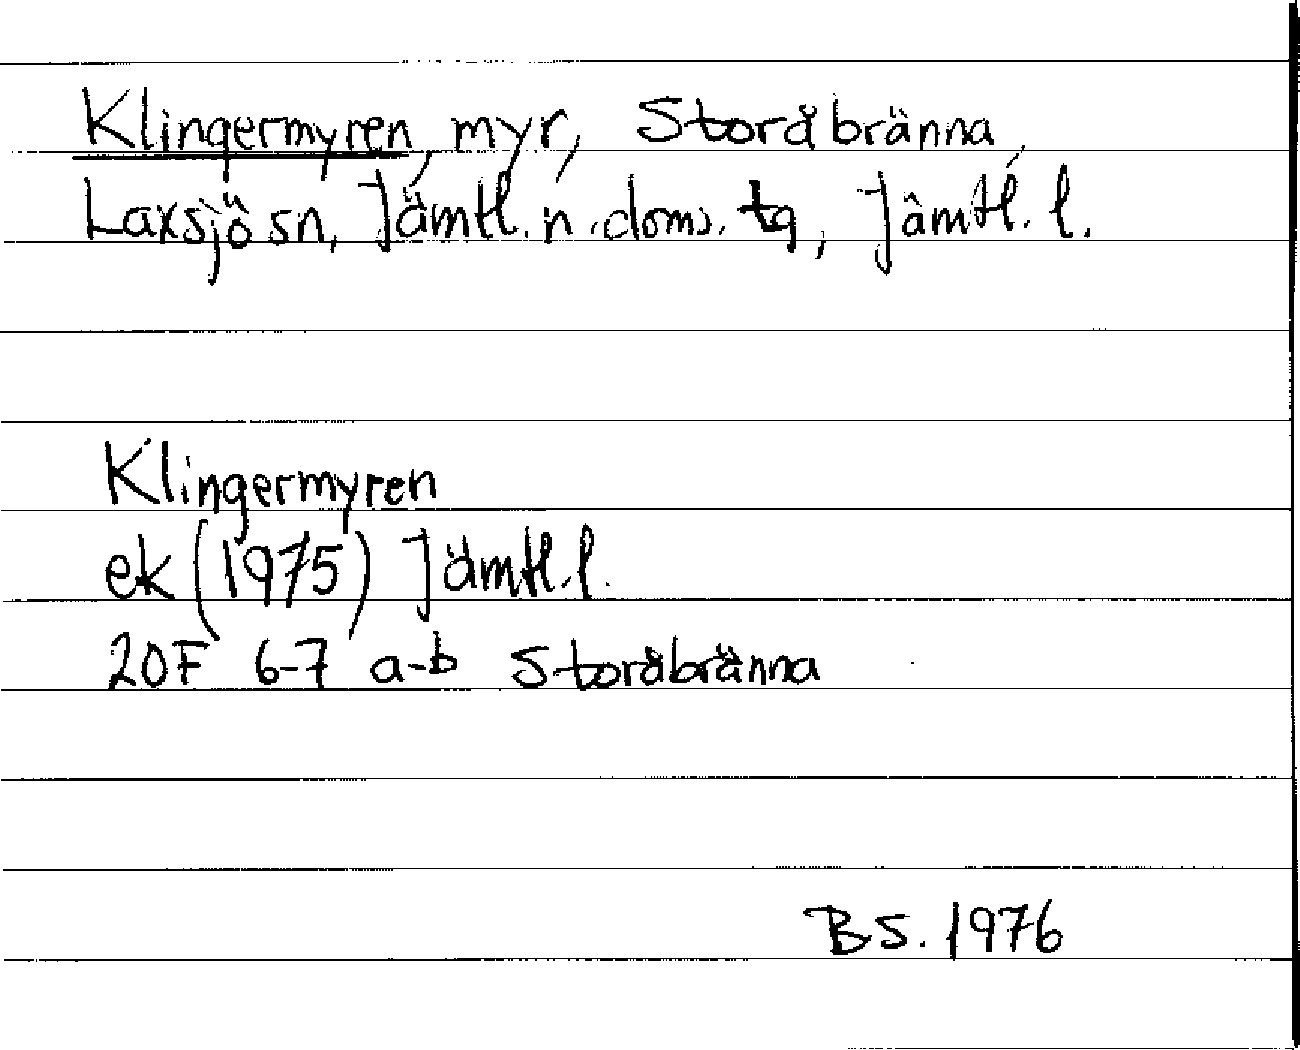 Klingermyren, myr, Storåbränna,
Laxsjö sn, Jämtl. n. doms. tg, Jämtl. l.
Klingermyren
ek (1975) Jämtl. l.
20F 6-7 a-b Storåbränna
BS. 1976